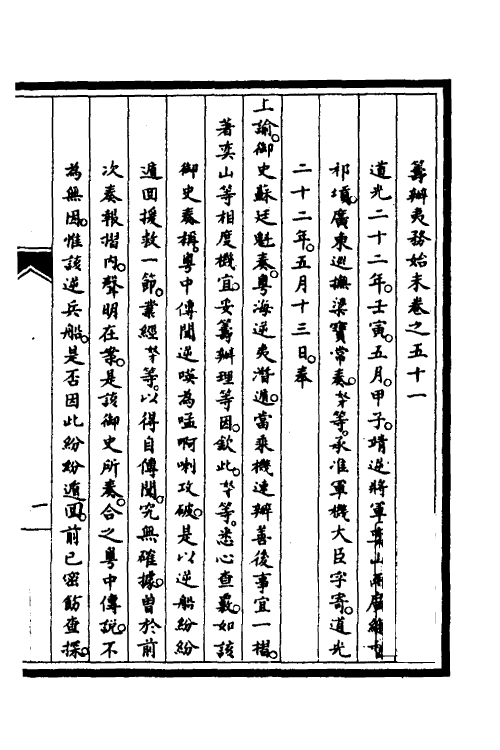 籌辦夷務始末卷之五十一
道光二十二年。壬寅。五月。甲子。靖逆將軍奕山兩廣總督
祁𡎴。廣東巡撫梁寶常。奏。竊等。承准軍機大臣字寄。道光
二十二年。五月十三日。奉
上諭。御史蘇廷魁奏。粵海逆夷潛遁。當乘機速辦善後事宜一摺。
著奕山等相度機宜。妥籌辦理等因。欽此。竊等。悉心查覈。如該
御史奏稱。粵中傳聞逆嘆為孟啊喇攻破。是以逆船紛紛
遁回援救一節。業經竊等。以得自傳聞。究無確據。曾於前
次奏報摺內。聲明在案。是該御史所奏。合之粵中傳說。不
為無因。惟該逆兵船。是否因此紛紛遁回。前已密飭查探。
一